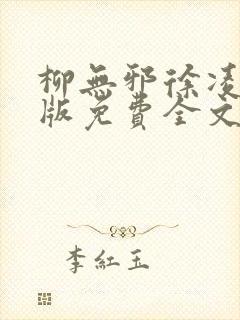 柳無邪徐凌
版免費全文
李紅玉